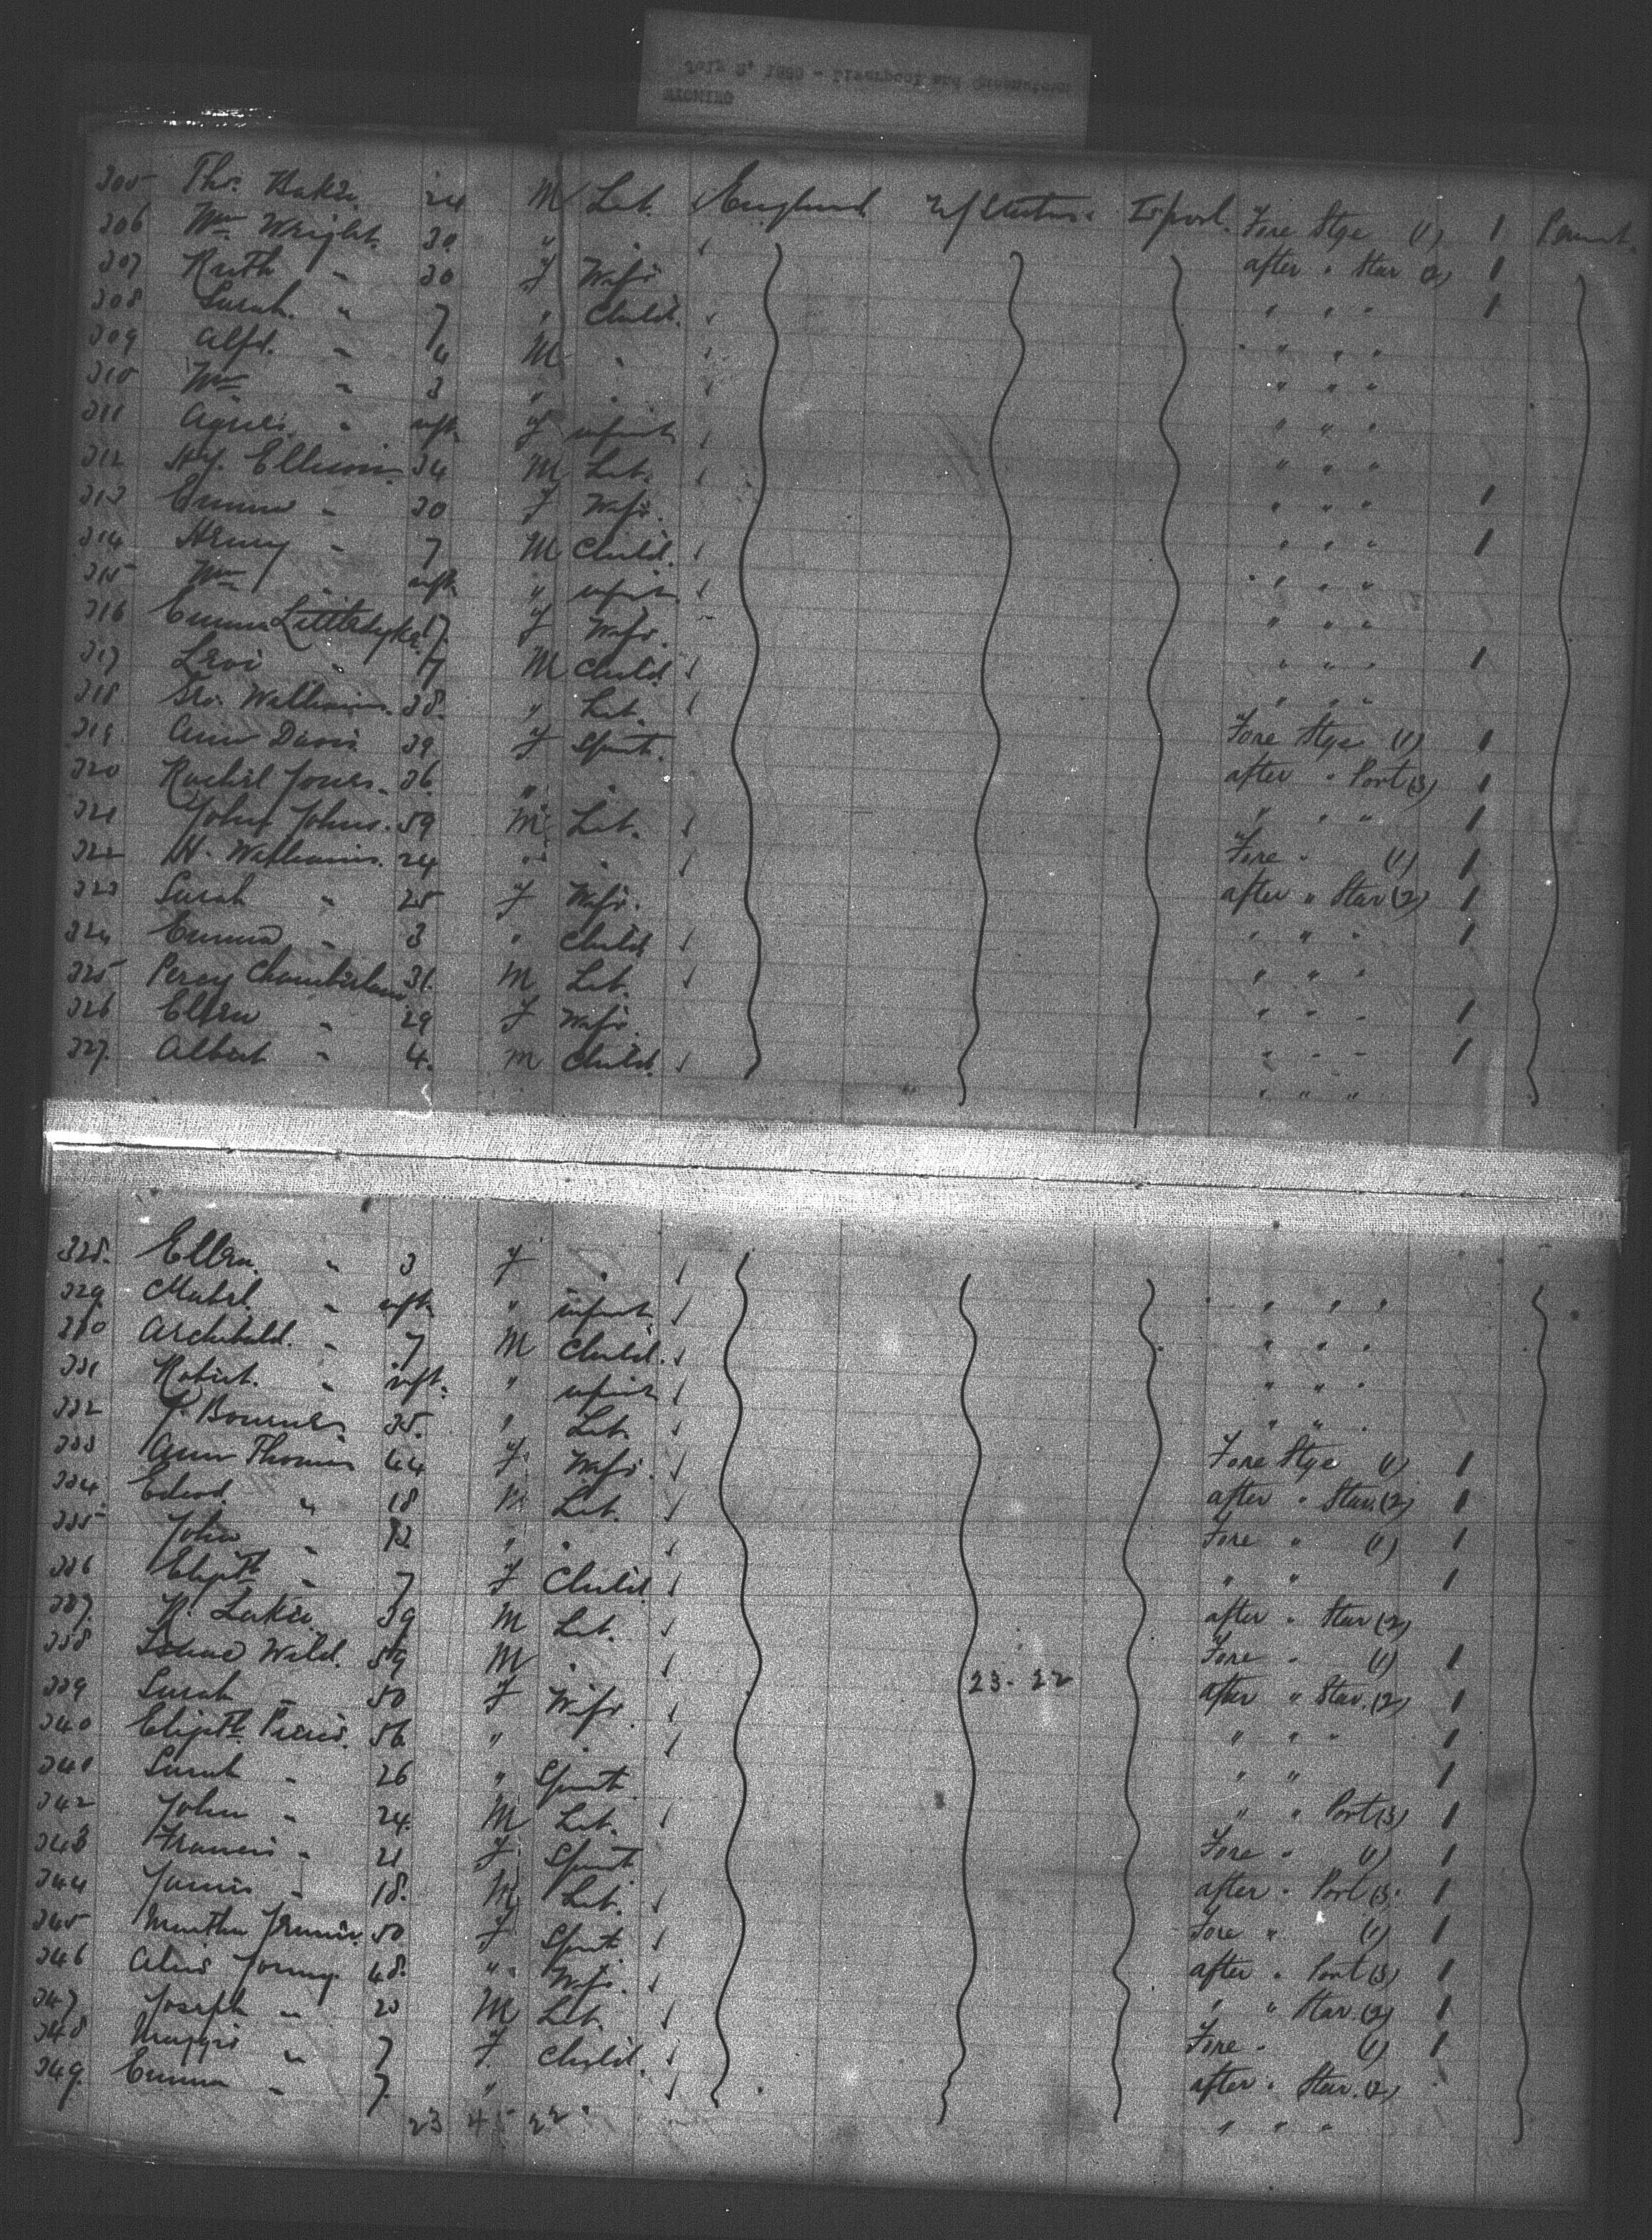 305 Thos. Baker 24 M Lab. England U/States L'pool. Fore Stge (1) 1
306 Wm Wright. 30 " " after " Star (2) 1
307 Ruth " 30 F Wife " " " 1
308 Sarah. " 7 " Child. " " "
309 Alfd. " 4 M " " " "
310 Wm " 3 " " " " "
311 Agnes. " inft. F infant " " "
312 Hy. Ellison 34 M Lab. " " " 1
313 Emma " 30 F Wife. " " " 1
314 Henry " 7 M Child. " " "
315 Wm " inft. " infant. " " "
316 Emma Littledyke F Wife. " " " 1
317 Levi " M Child " " "
318 Williams. 38. " Lab. Fore Stge (1) 1
319 Ann Davis 39 F Spinst. after " Port (3) 1
320 Rachel Jones. 36. " " " " " 1
321 John Johns. 59 M Lab. Fore " (1) 1
322 W. Williams. 24 " " after " Star (2) 1
323 Sarah " 25 F Wife. " " " 1
324 Emma " 3 " Child " " "
325 Percy Chamberlain 31. M Lab. " " " 1
326 Ellen " 29 F Wife. " " " 1
327. Albert " 4. M Child. " " "
328. Ellen. " 3 F " " " "
329. Mabel. " inft. " infant. " " "
330 Archibald. " 7 M Child. " " "
331 Robert. " inft. " infant " " "
332 Bournes. 35. " Lab. Fore Stge (1) 1
333 Ann Thomas 44 F Wife. after " Star. (2) 1
334 Edwd. " 18 M Lab. Fore " (1) 1
335 John " 12 " " " " 1
336 Elizth " 7 F Child after " Star (2)
337. Laker. 39 M Lab. Fore " (1) 1
338 Isaac Wild. 59 M " 23-22 after " Star. (2) 1
339 Sarah " 50 F Wife. " " " 1
340 Elizth. 56. " " " " 1
341 Sarah " 26 " Spinst. " " Port (3) 1
342 John " 24. M Lab. Fore " (1) 1
343 Frances " 21 F Spinst after " Port (3) 1
344 James " 18. M Lab. Fore " (1) 1
345 Martha 50 F Spinst. after " Port (3) 1
346 Alice 48. " Wife. " " Star. (2) 1
347 Joseph " 20 M Lab. Fore " (1) 1
348 Maggie " 7 F. Child. after " Star. (2)
349. Emma " 7. " " " "
23 45 22